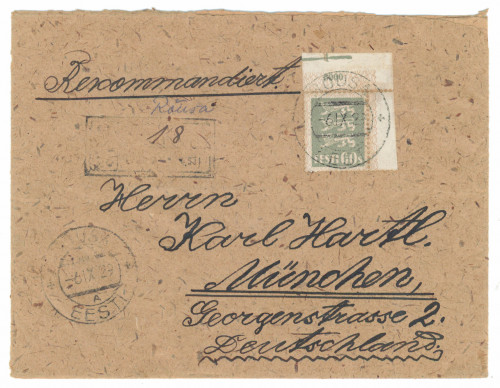 Rekommandiert.
18
EESTI 60 s
Herrn
Karl Hartl.
München,
Georgenstrasse 2.
Deutschland.
6 IX 29
A
EESTI